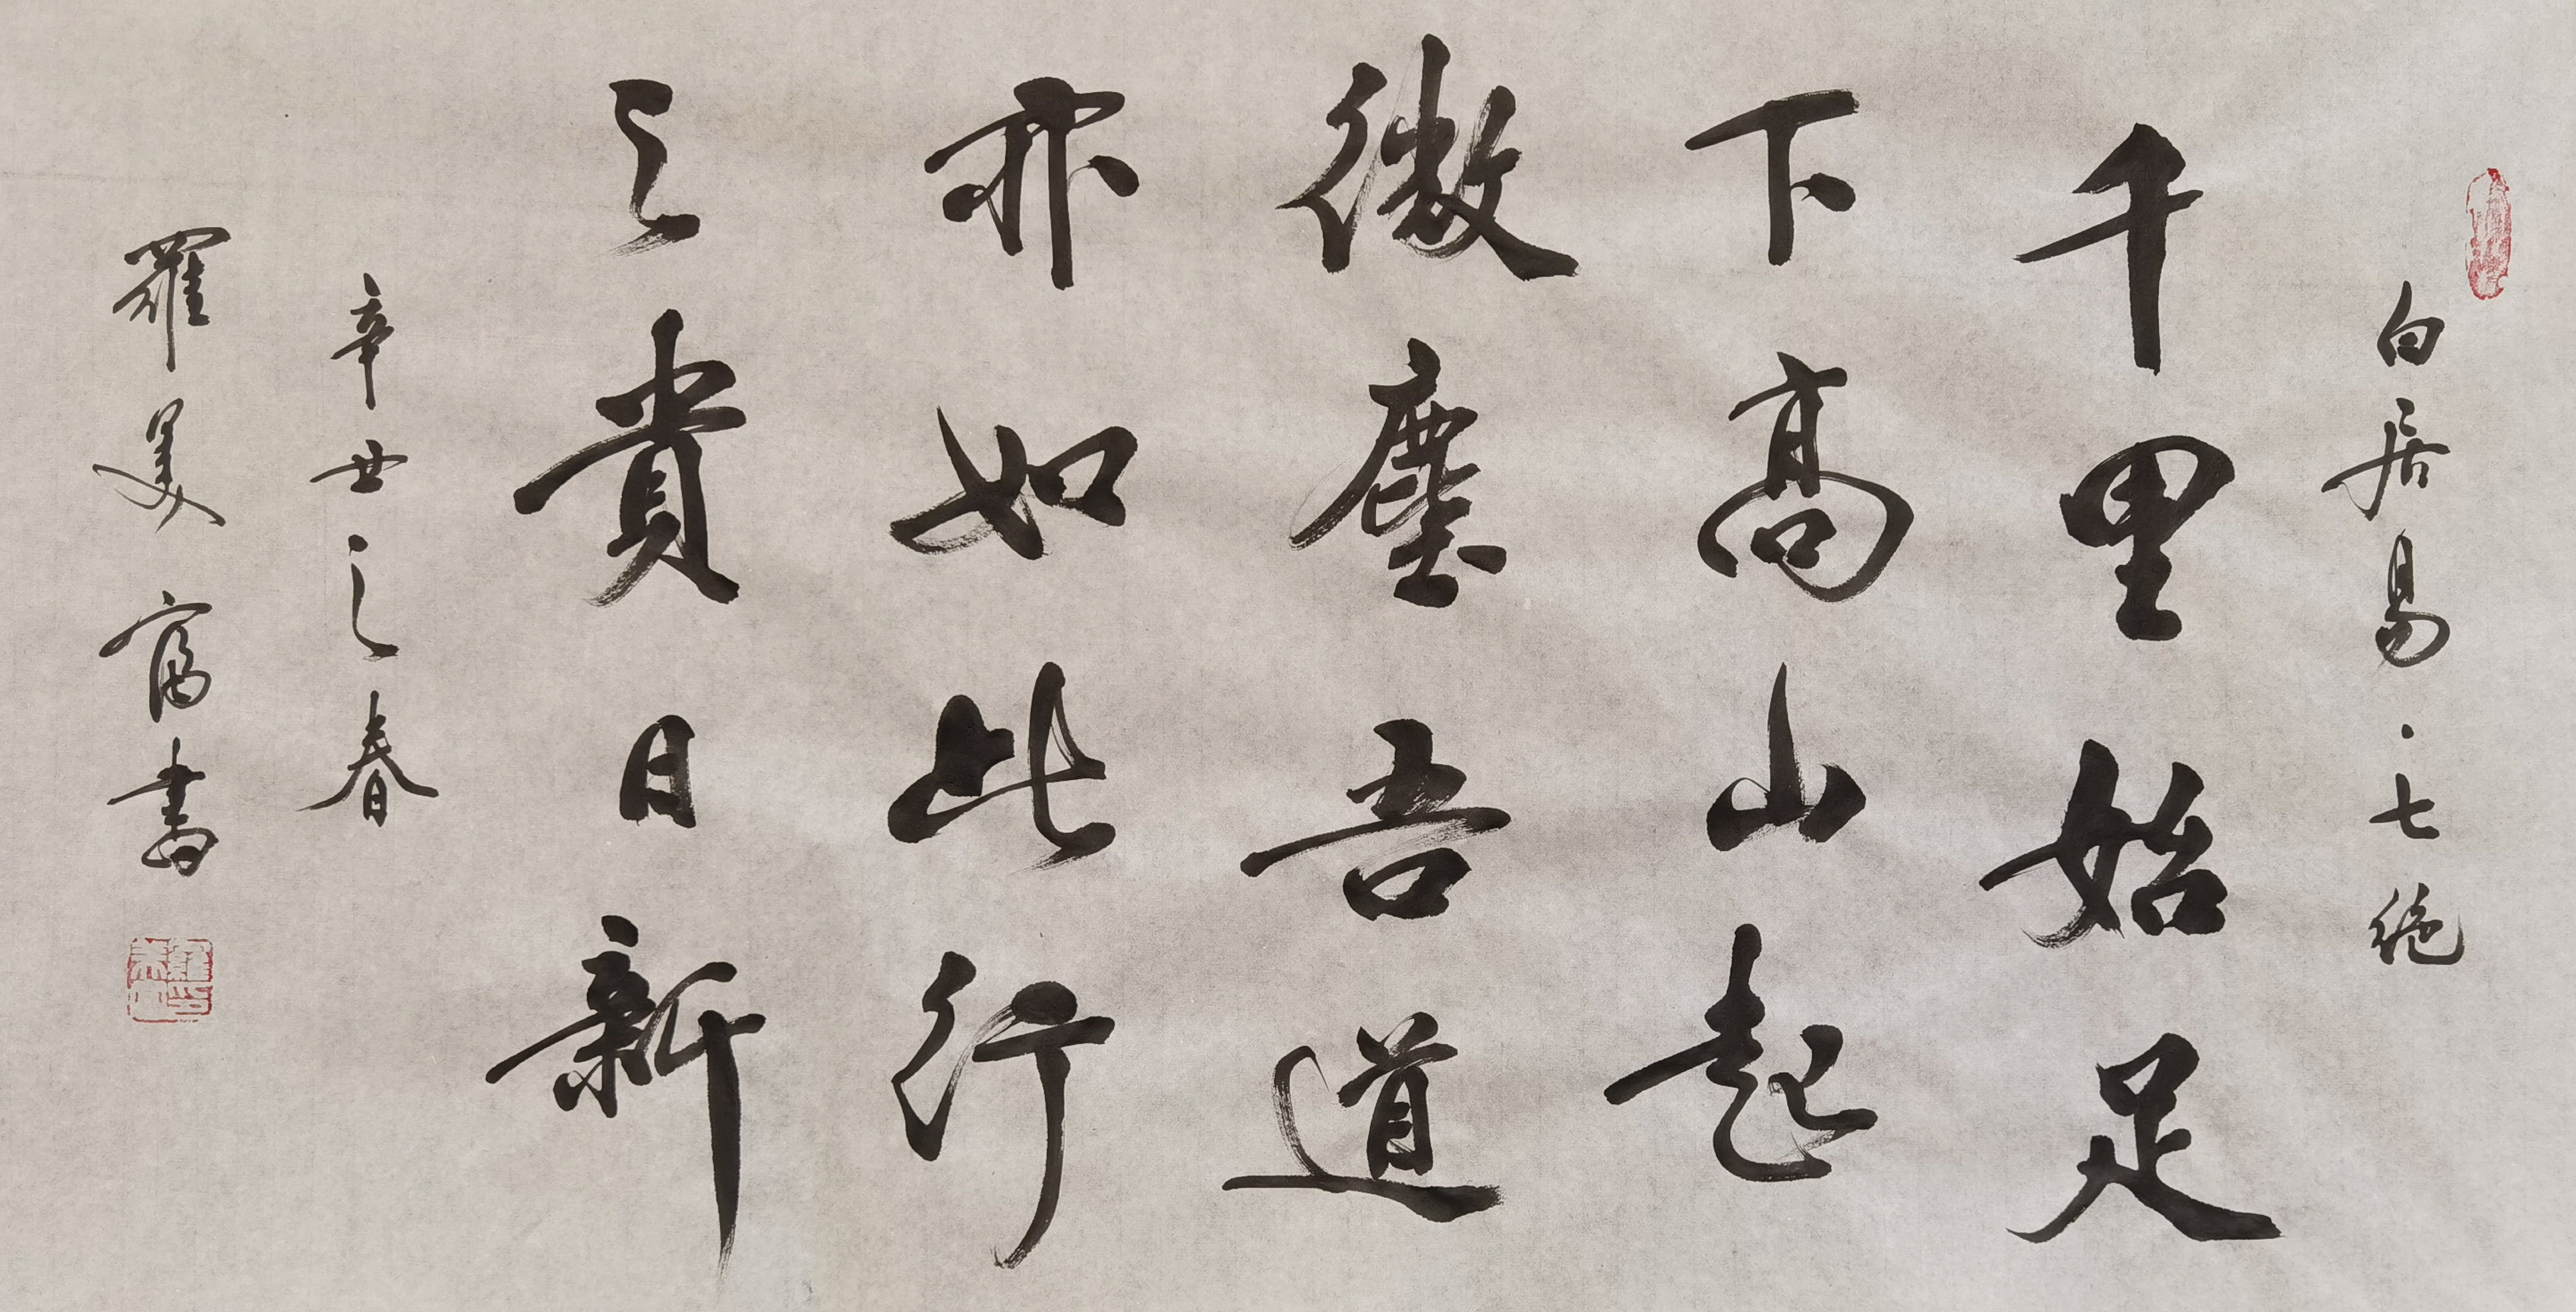 白居易·七绝
千里始足
下高山起
微塵吾道
亦如此行
之貴日新
辛丑之春
羅美富書